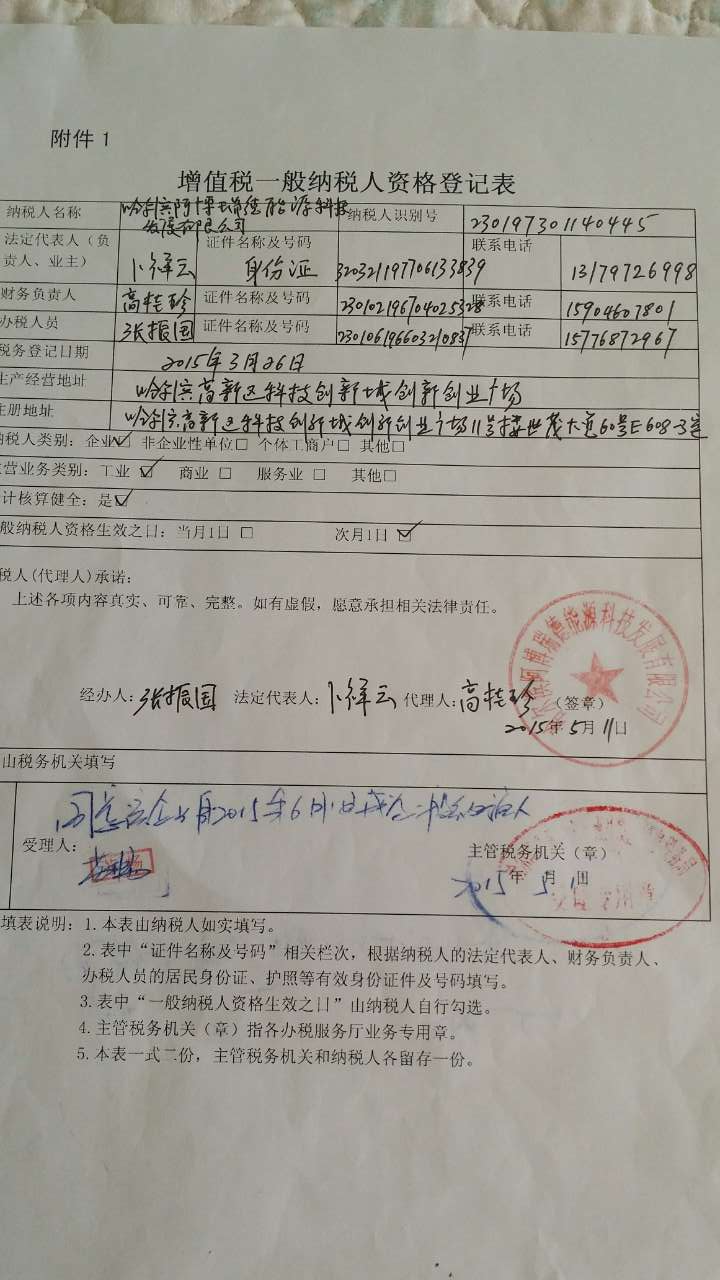 附件1
增值税一般纳税人资格登记表
纳税人名称 哈尔滨阿博瑞德能源科技发展有限公司 纳税人识别号 230197301140445
法定代表人(负责人、业主) 卜祥云 证件名称及号码 身份证 320321197706133839 联系电话 13179726998
财务负责人 高桂珍 证件名称及号码 230102196704025328 联系电话 15904607801
办税人员 张振国 证件名称及号码 230106196603210837 联系电话 15776872967
税务登记日期 2015年3月26日
生产经营地址 哈尔滨高新区科技创新城创新创业广场
注册地址 哈尔滨高新区科技创新城创新创业广场11号楼世茂大道60号E608-3室
纳税人类别:企业☑ 非企业性单位□ 个体工商户□ 其他□
营业务类别:工业☑ 商业□ 服务业□ 其他□
计核算健全:是☑
般纳税人资格生效之日:当月1日□ 次月1日☑
税人(代理人)承诺:
上述各项内容真实、可靠、完整。如有虚假,愿意承担相关法律责任。
阿博瑞德能源科技发展有限公司
经办人:张振国 法定代表人:卜祥云 代理人:高桂珍 (签章)
2015年5月11日
由税务机关填写
同意该企业自2015年6月1日
受理人:
主管税务机关(章)
2015年5月
填表说明:1.本表由纳税人如实填写。
2.表中“证件名称及号码”相关栏次,根据纳税人的法定代表人、财务负责人、
办税人员的居民身份证、护照等有效身份证件及号码填写。
3.表中“一般纳税人资格生效之日”由纳税人自行勾选。
4.主管税务机关(章)指各办税服务厅业务专用章。
5.本表一式二份,主管税务机关和纳税人各留存一份。